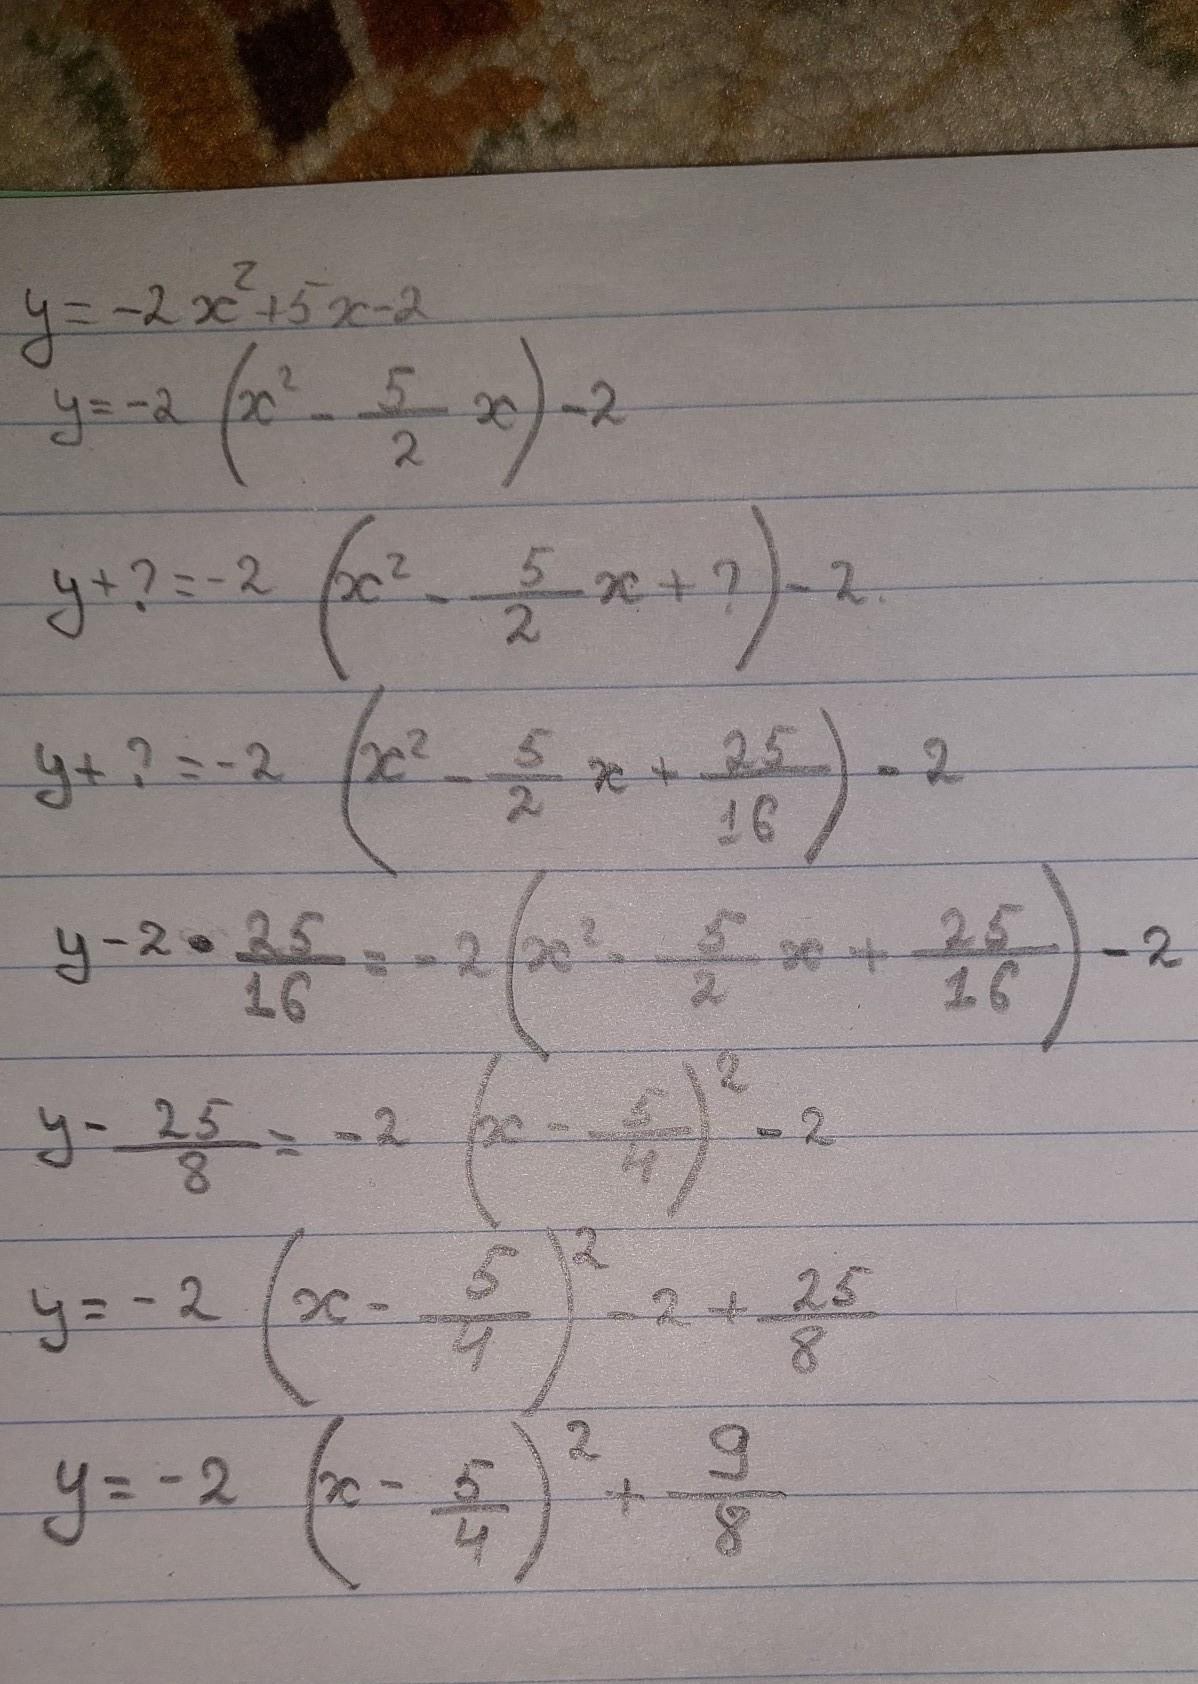 y = -2x² + 5x - 2
y = -2 (x² - 5/2 x) - 2
y + ? = -2 (x² - 5/2 x + ?) - 2
y + ? = -2 (x² - 5/2 x + 25/16) - 2
y - 2 • 25/16 = -2 (x² - 5/2 x + 25/16) - 2
y - 25/8 = -2 (x - 5/4)² - 2
y = -2 (x - 5/4)² - 2 + 25/8
y = -2 (x - 5/4)² + 9/8